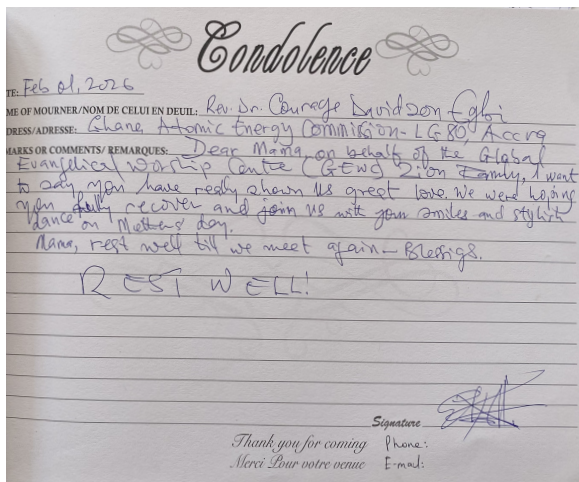 Condolence
TE: Feb 01, 2026
ME OF MOURNER/NOM DE CELUI EN DEUIL: Rev. Dr. Courage Davidson Egbi
DRESS/ADRESSE: Ghana Atomic Energy Commission - LG80, Accra
MARKS OR COMMENTS/ REMARQUES: Dear Mama, on behalf of the Global
Evangelical Worship Centre (GEWC) Zion Family, I want
to say, you have really shown us great love. We were hoping
you fully recover and join us with your smiles and stylish
dance on Mothers' day.
Mama, rest well till we meet again - Blessigs.
REST WELL!
Signature
Thank you for coming Phone:
Merci Pour votre venue E-mail: